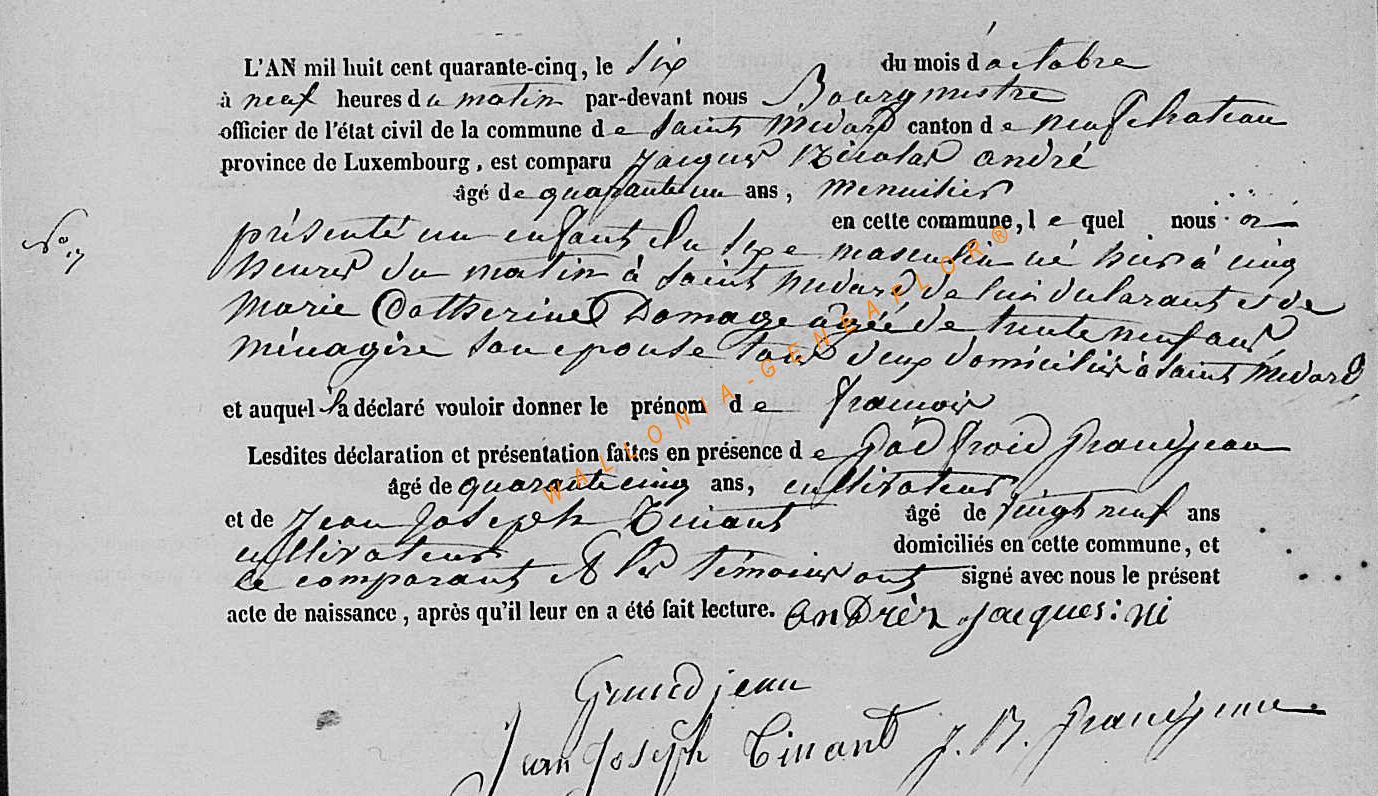 L'AN mil huit cent quarante-cinq, le six du mois d'octobre
à neuf heures du matin par-devant nous Bourgmestre
officier de l'état civil de la commune de Saint Médard canton de neufchateau
province de Luxembourg, est comparu Jacques Nicolas andré
âgé de quarante un ans, menuisier
en cette commune, lequel nous a
N° 17
présenté un enfant du sexe masculin né hier à cinq
heures du matin à Saint Médard de lui déclarant et de
Marie Catherine Domage agée de trente neuf ans,
ménagère son épouse tous deux domiciliés à Saint Médard
et auquel il a déclaré vouloir donner le prénom de françois
Lesdites déclaration et présentation faites en présence de God froid Grandjean
âgé de quarante cinq ans, cultivateur
et de Jean Joseph Tinant âgé de vingt neuf ans
cultivateur domiciliés en cette commune, et
le comparant et les témoins ont signé avec nous le présent
acte de naissance, après qu'il leur en a été fait lecture. andrèz jacques: ni
Grandjean
Jean Joseph Tinant J. B. Grandjean
WALLONIA-GENEAFLOR®